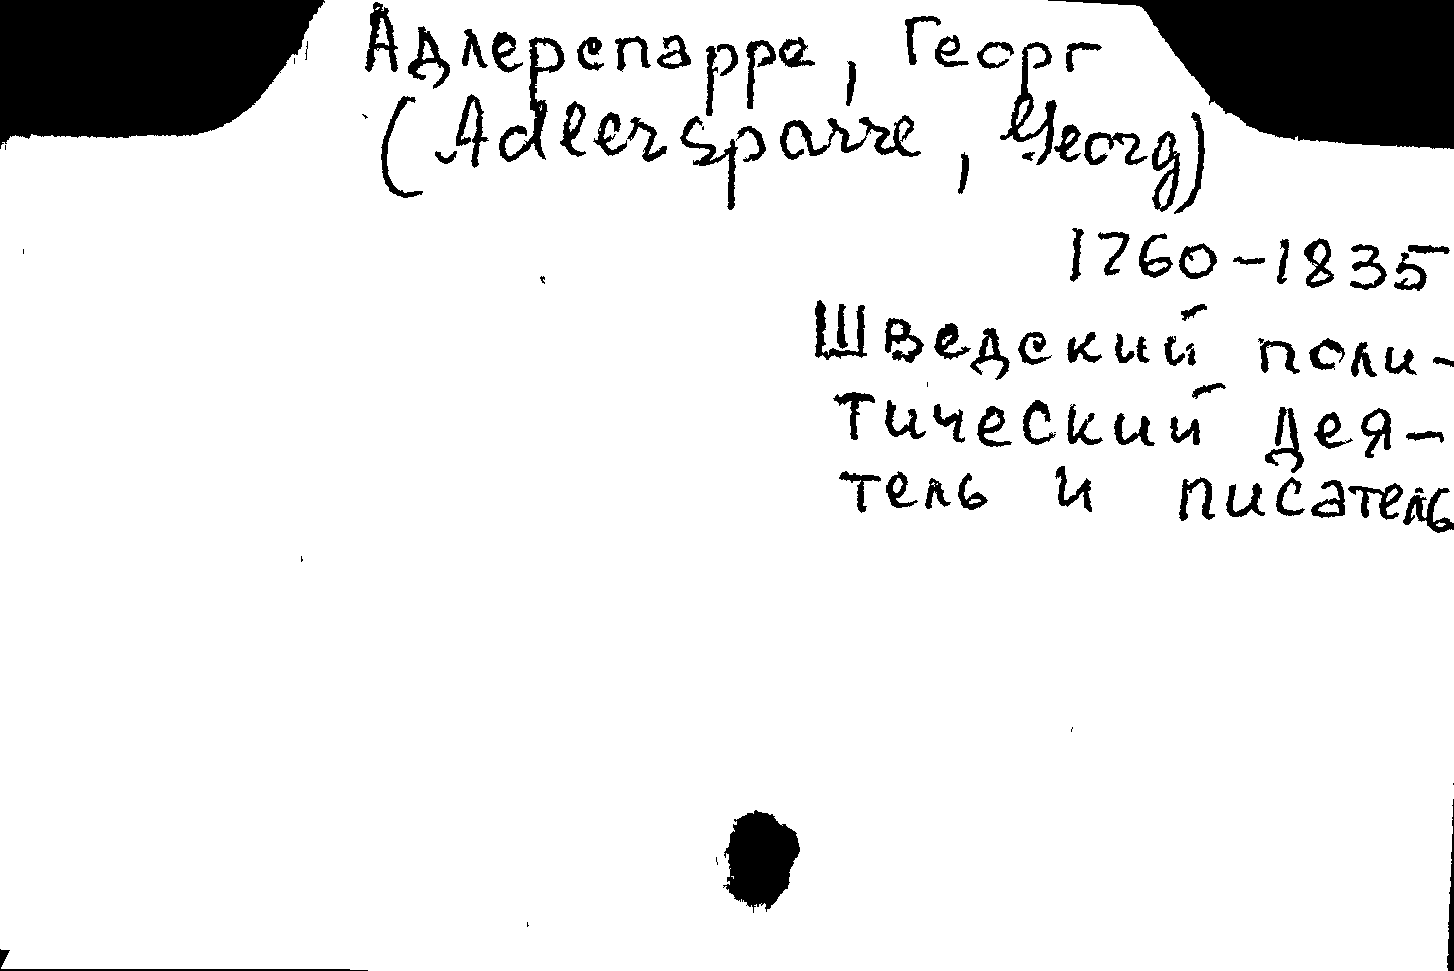 Адлерспарре, Георг
(Adlersparre, Georg)
1760-1835
Шведский поли-
тический дея-
тель и писатель